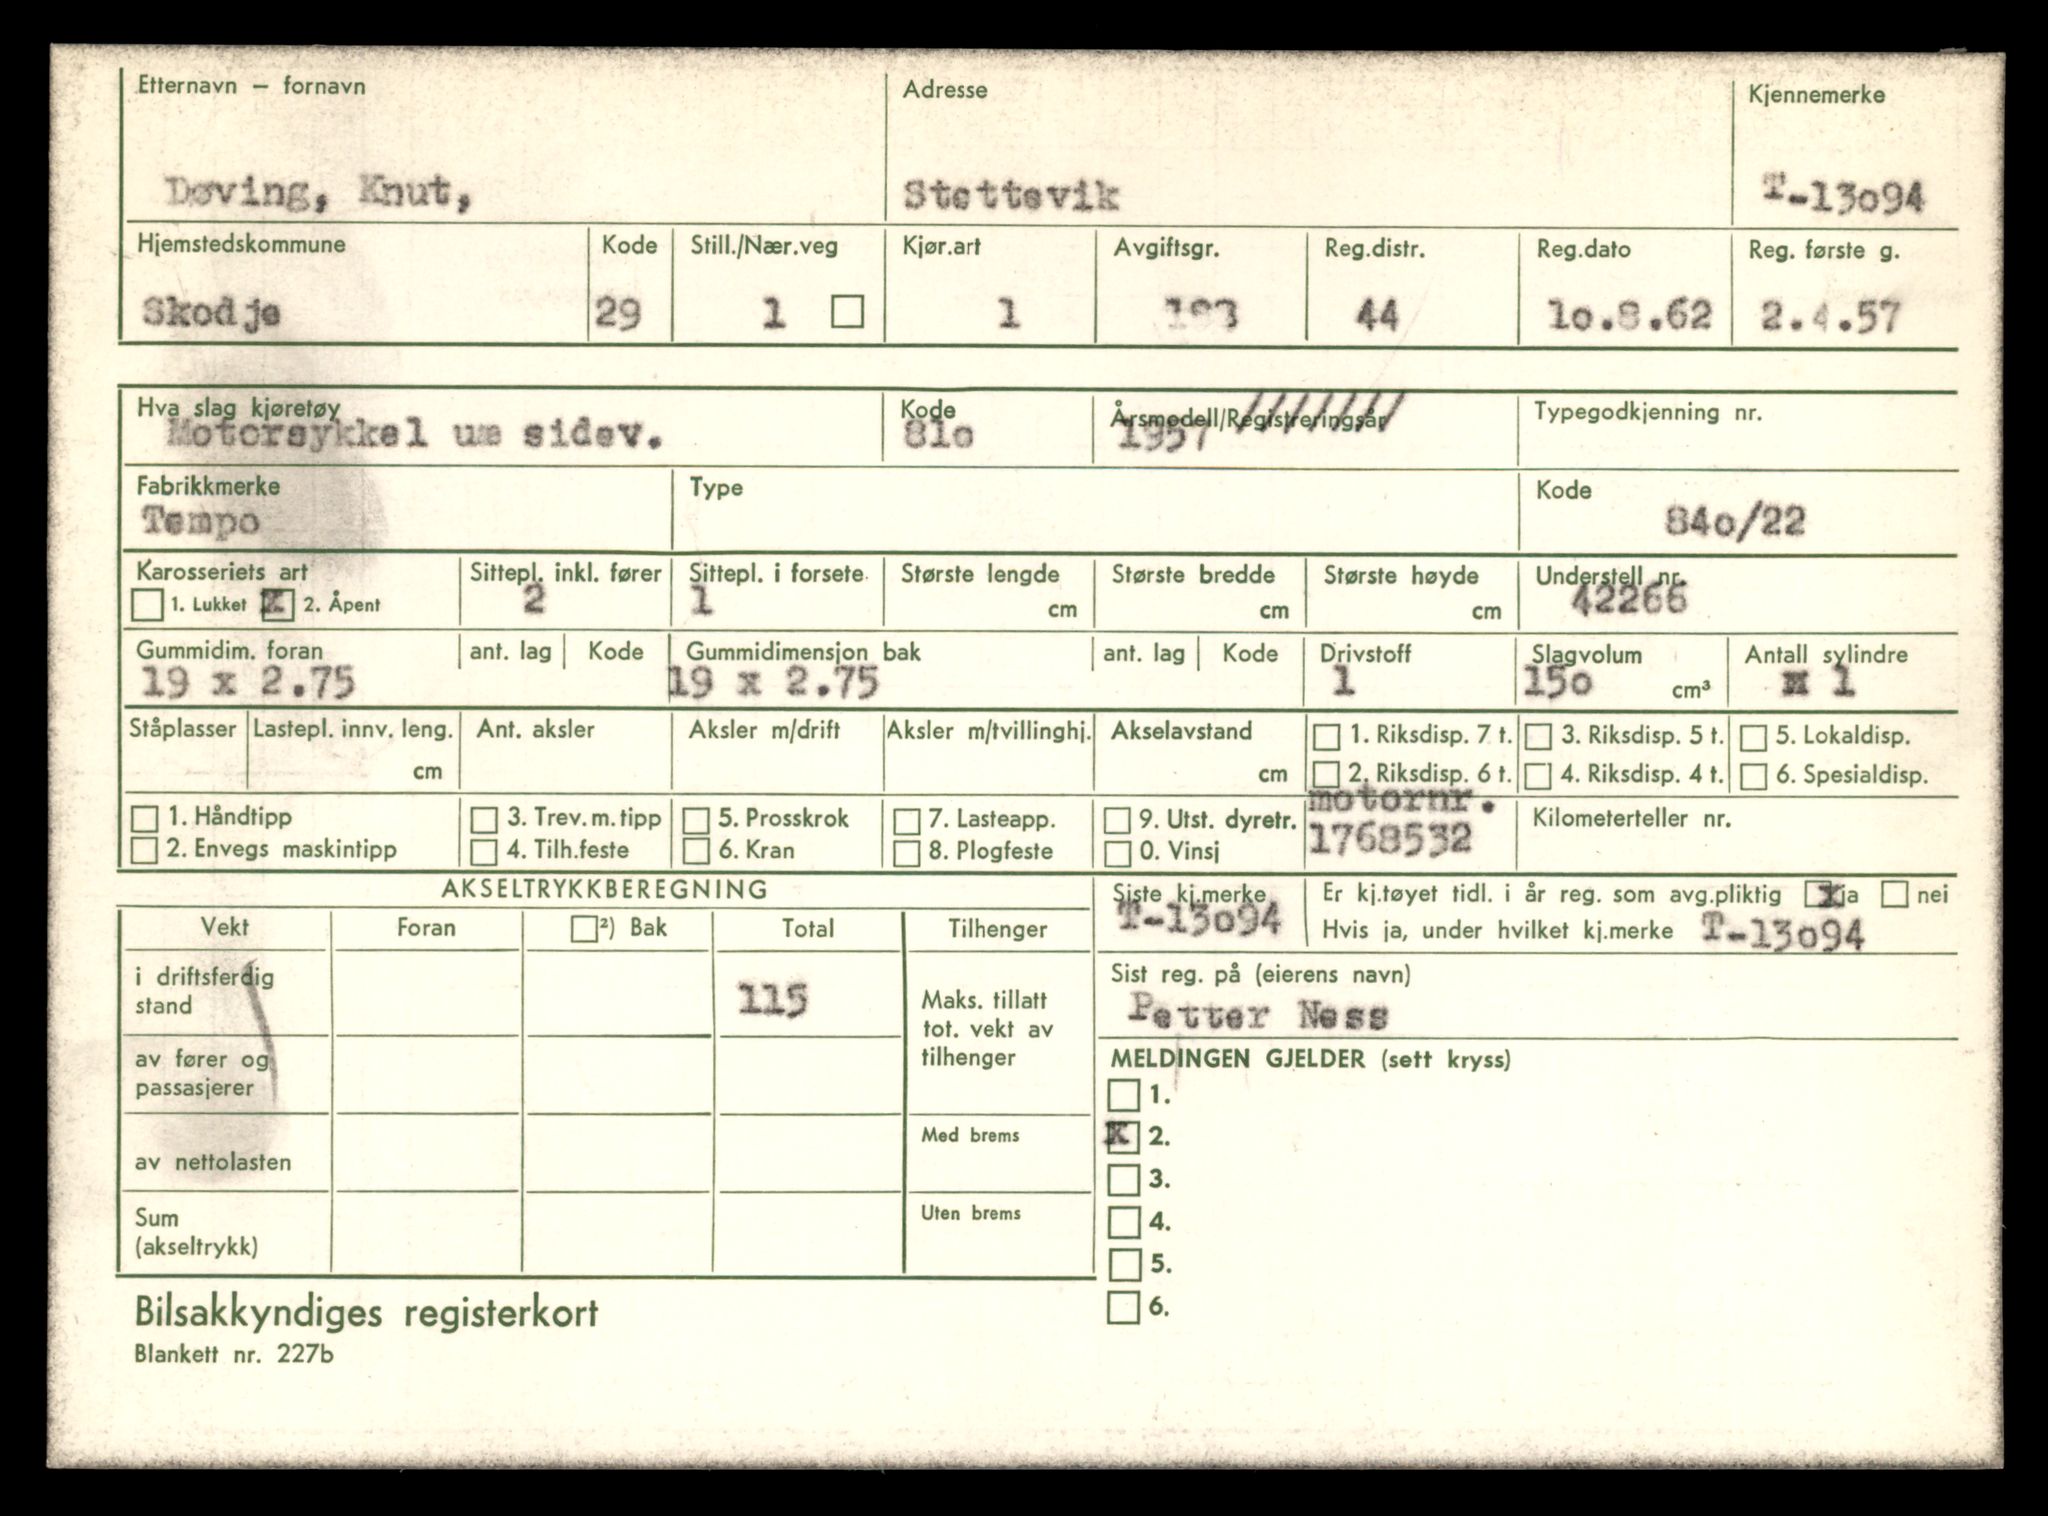 Etternavn – fornavn Adresse Kjennemerke
Døving, Knut, Stettevik T-13o94
Hjemstedskommune Kode Still./Nær.veg Kjør.art Avgiftsgr. Reg.distr. Reg.dato Reg. første g.
Skodje 29 1 1 44 1o.8.62 2.4.57
Hva slag kjøretøy Kode Årsmodell/Registreringsår Typegodkjenning nr.
Motorsykkel sidev. 81o 1957 ///////
Fabrikkmerke Type Kode
Tempo 84o/22
Karosseriets art Sittepl. inkl. fører Sittepl. i forsete Største lengde Største bredde Største høyde Understell nr.
1. Lukket X 2. Åpent 2 1 cm cm cm 42266
Gummidim. foran ant. lag Kode Gummidimensjon bak ant. lag Kode Drivstoff Slagvolum Antall sylindre
19 x 2.75 19 x 2.75 1 15o cm³ 1
Ståplasser Lastepl. innv. leng. Ant. aksler Aksler m/drift Aksler m/tvillinghj. Akselavstand 1. Riksdisp. 7 t. 3. Riksdisp. 5 t. 5. Lokaldisp.
cm cm 2. Riksdisp. 6 t. 4. Riksdisp. 4 t. 6. Spesialdisp.
1. Håndtipp 3. Trev. m. tipp 5. Prosskrok 7. Lasteapp. 9. Utst. dyretr. motornr. Kilometerteller nr.
2. Envegs maskintipp 4. Tilh.feste 6. Kran 8. Plogfeste 0. Vinsj 1768532
AKSELTRYKKBEREGNING
Vekt Foran ²) Bak Total Tilhenger
i driftsferdig
stand 115
Maks. tillatt
tot. vekt av
tilhenger
av fører og
passasjerer
Med brems
av nettolasten
Sum
(akseltrykk)
Uten brems
Siste kj.merke Er kj.tøyet tidl. i år reg. som avg.pliktig X ja nei
T-13o94 Hvis ja, under hvilket kj.merke T-13o94
Sist reg. på (eierens navn)
Petter Ness
MELDINGEN GJELDER (sett kryss)
1.
X 2.
3.
4.
5.
6.
Bilsakkyndiges registerkort
Blankett nr. 227b